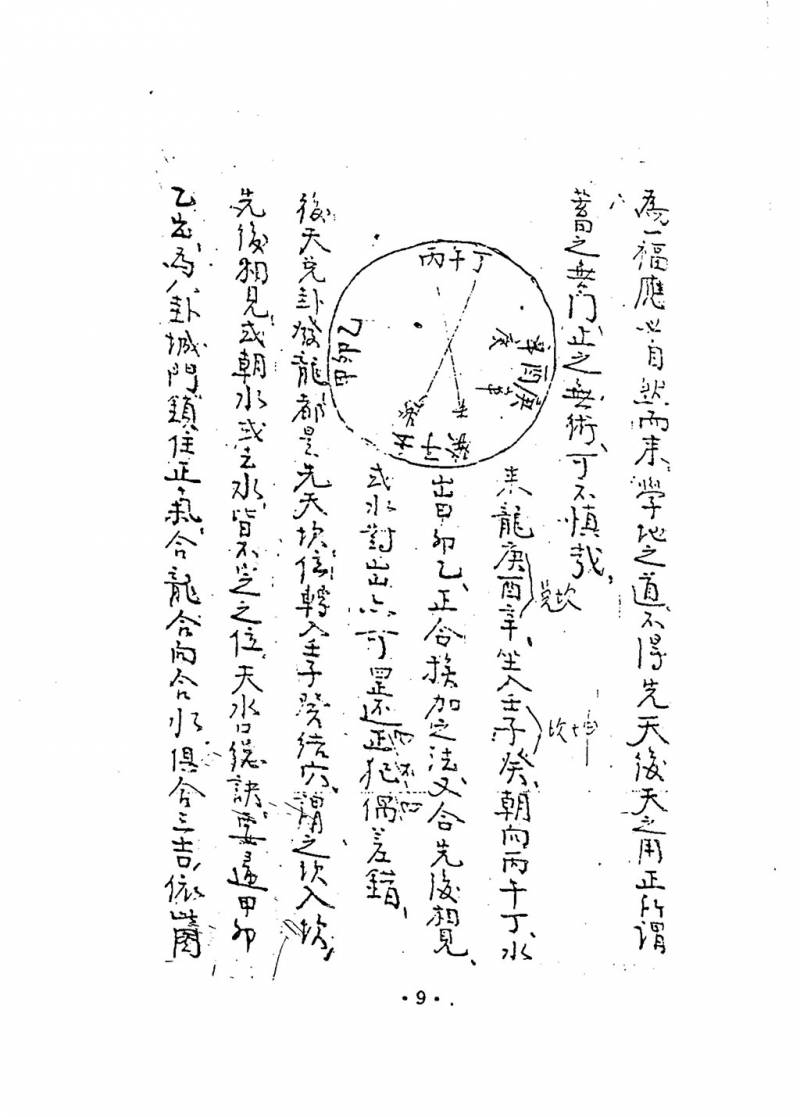 為一福應必自然而来學地之道、不得先天後天之用正所谓
蓄之無门、止之無術、可不慎哉、
来龍庚酉辛、坐入壬子癸、朝向丙午丁、水
兑坎
坎坤
出甲卯乙、正合挨加之法、又合先後相見、
或水對出亦可還正犯偶差錯、
丙午丁
甲卯乙
後天兑卦發龍都是先天坎位轉入壬子癸结穴、謂之坎入坎、
先後相見、或朝水或去水、皆不之位、天水口總訣、要逼甲卯
乙出、為八卦城門鎖住正氣、合龍合向合水俱合三吉、依圖
• 9 •